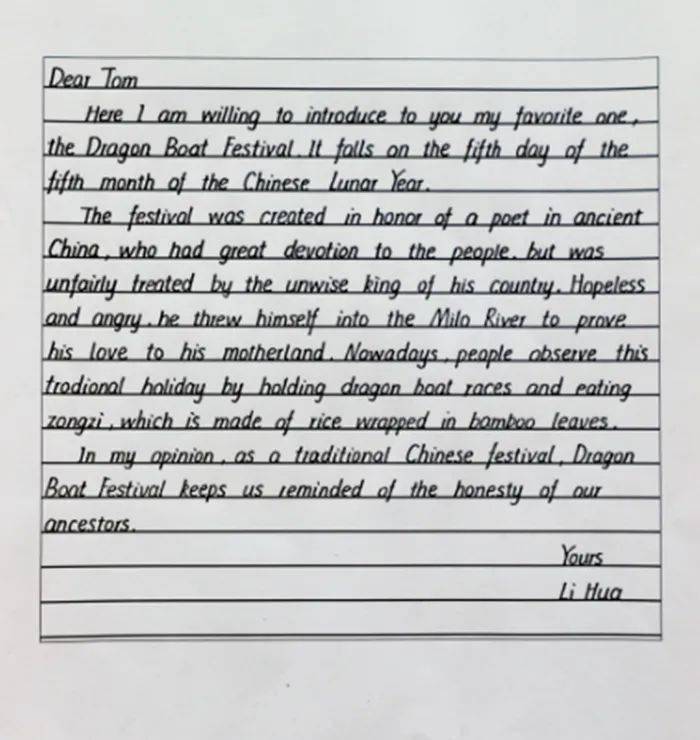 Dear Tom
Here I am willing to introduce to you my favorite one,
the Dragon Boat Festival. It falls on the fifth day of the
fifth month of the Chinese Lunar Year.
The festival was created in honor of a poet in ancient
China, who had great devotion to the people. but was
unfairly treated by the unwise king of his country. Hopeless
and angry. he threw himself into the Milo River to prove
his love to his motherland. Nowadays, people observe this
tradional holiday by holding dragon boat races and eating
zongzi, which is made of rice wrapped in bamboo leaves.
In my opinion, as a traditional Chinese festival, Dragon
Boat Festival keeps us reminded of the honesty of our
ancestors.
Yours
Li Hua